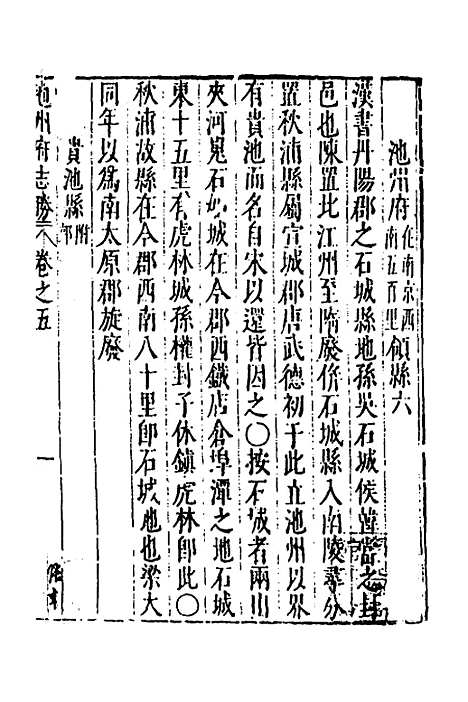 池州府在南京西南五百里領縣六
漢書丹陽郡之石城縣地孫吳石城侯韓當之封
邑也陳置北江州至隋廢併石城縣入南陵尋分
置秋浦縣屬宣城郡唐武德初于此立池州以界
有貴池而名自宋以還皆因之〇按石城者兩山
夾河晃石如城在今郡西鐵店倉埠潭之地石城
東十五里有虎林城孫權封子休鎮虎林即此〇
秋浦故縣在今郡西南八十里即石城地也梁大
同年以爲南太原郡旋廢
貴池縣附郭
池州府志勝 卷之五 一